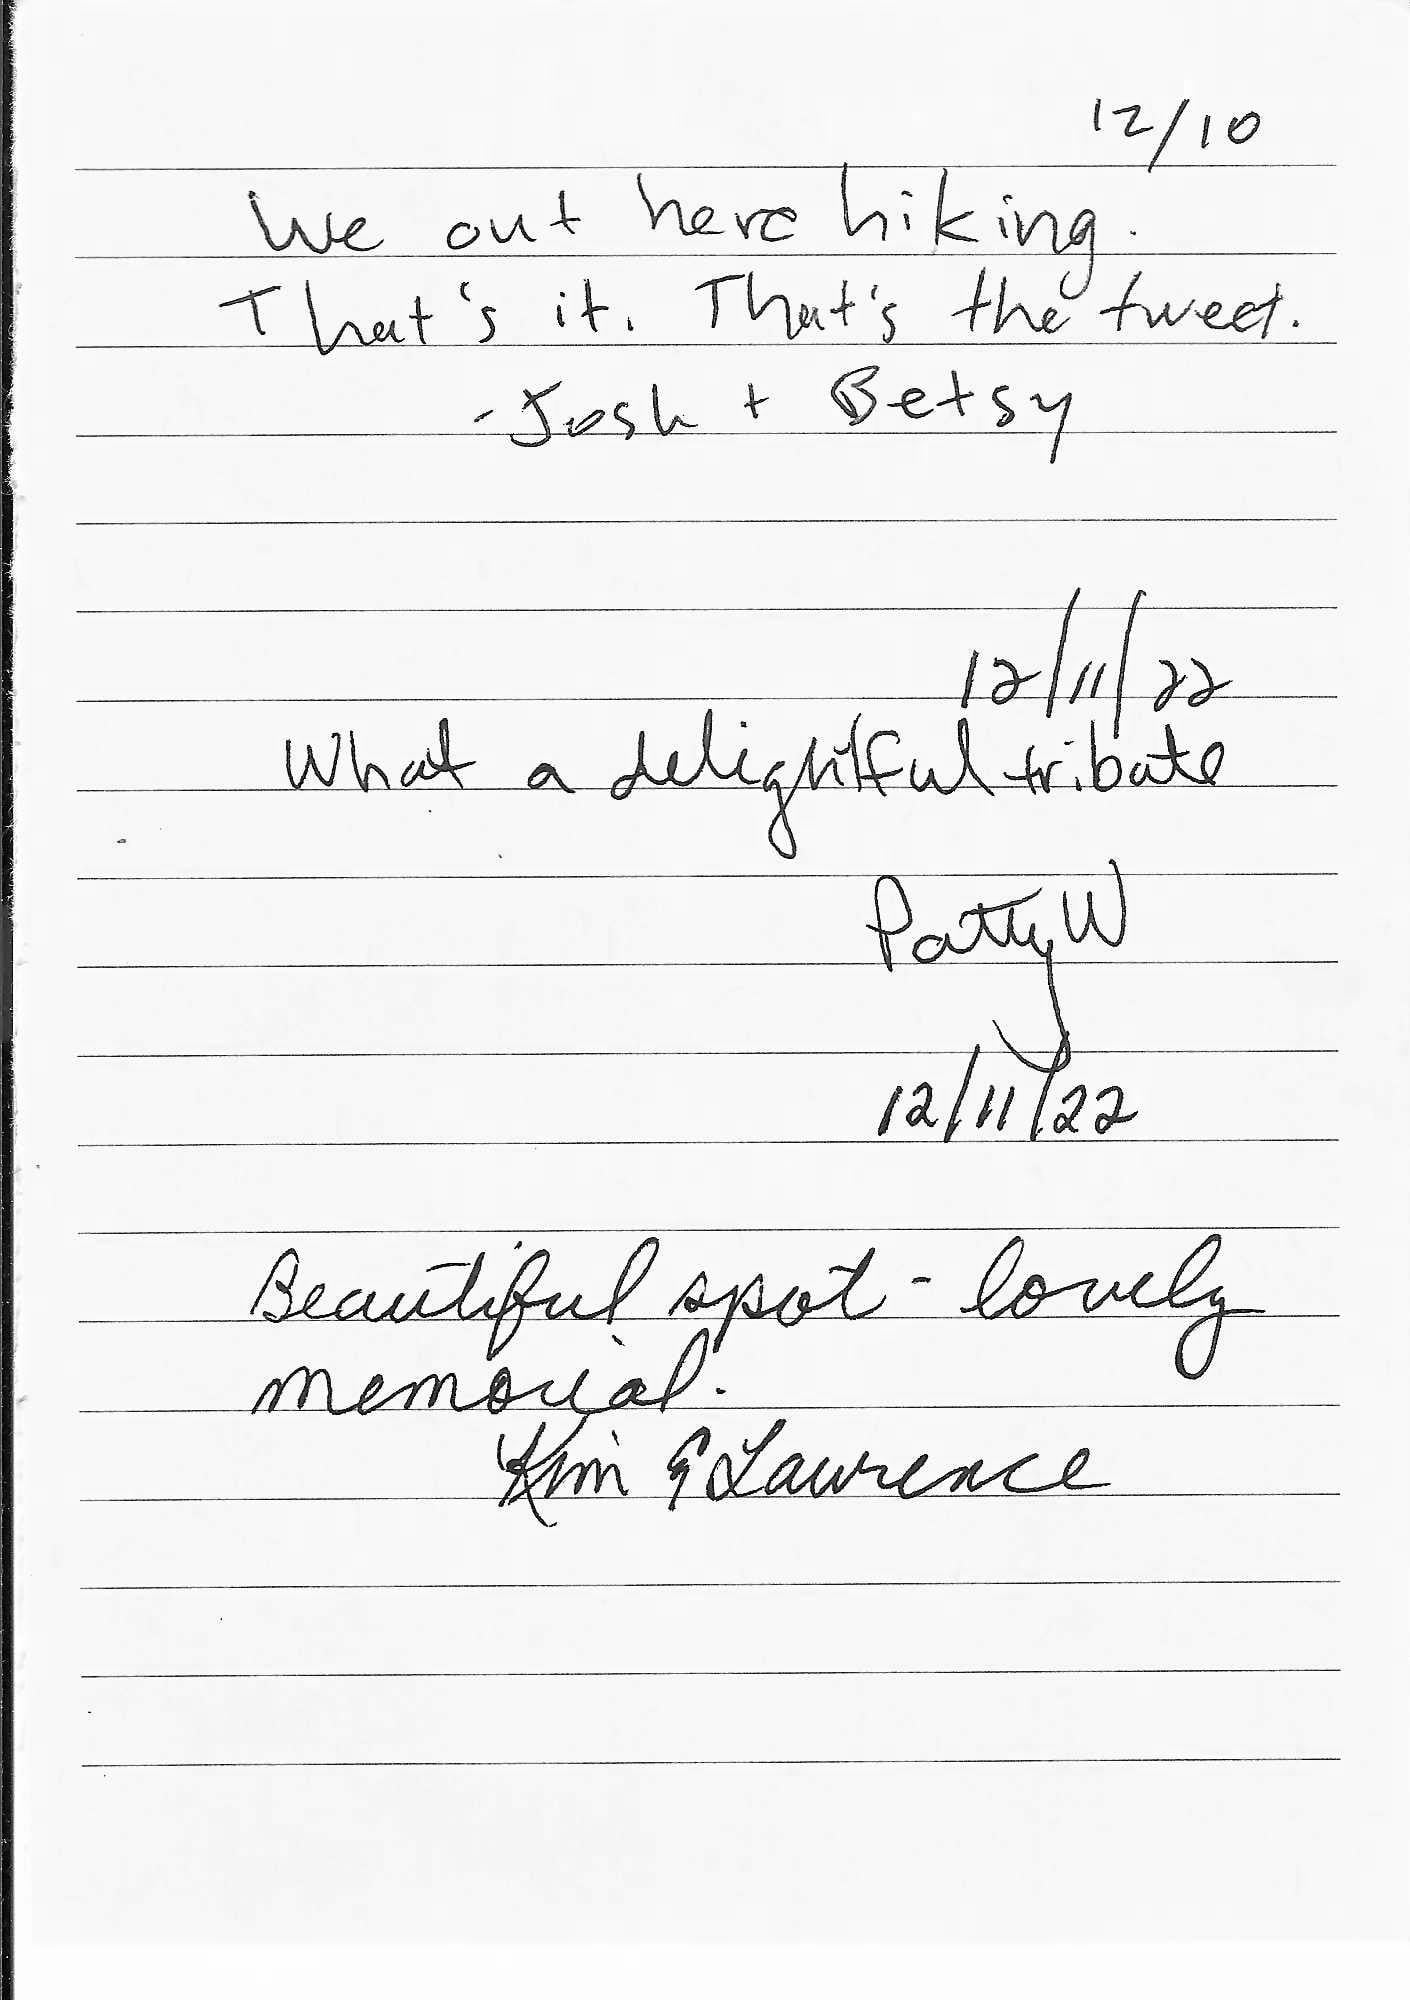 12/10
We out here hiking.
That's it. That's the tweet.
- Josh + Betsy
12/11/22
What a delightful tribute
Patty W
12/11/22
Beautiful spot - lovely
memorial.
Kim & Lawrence